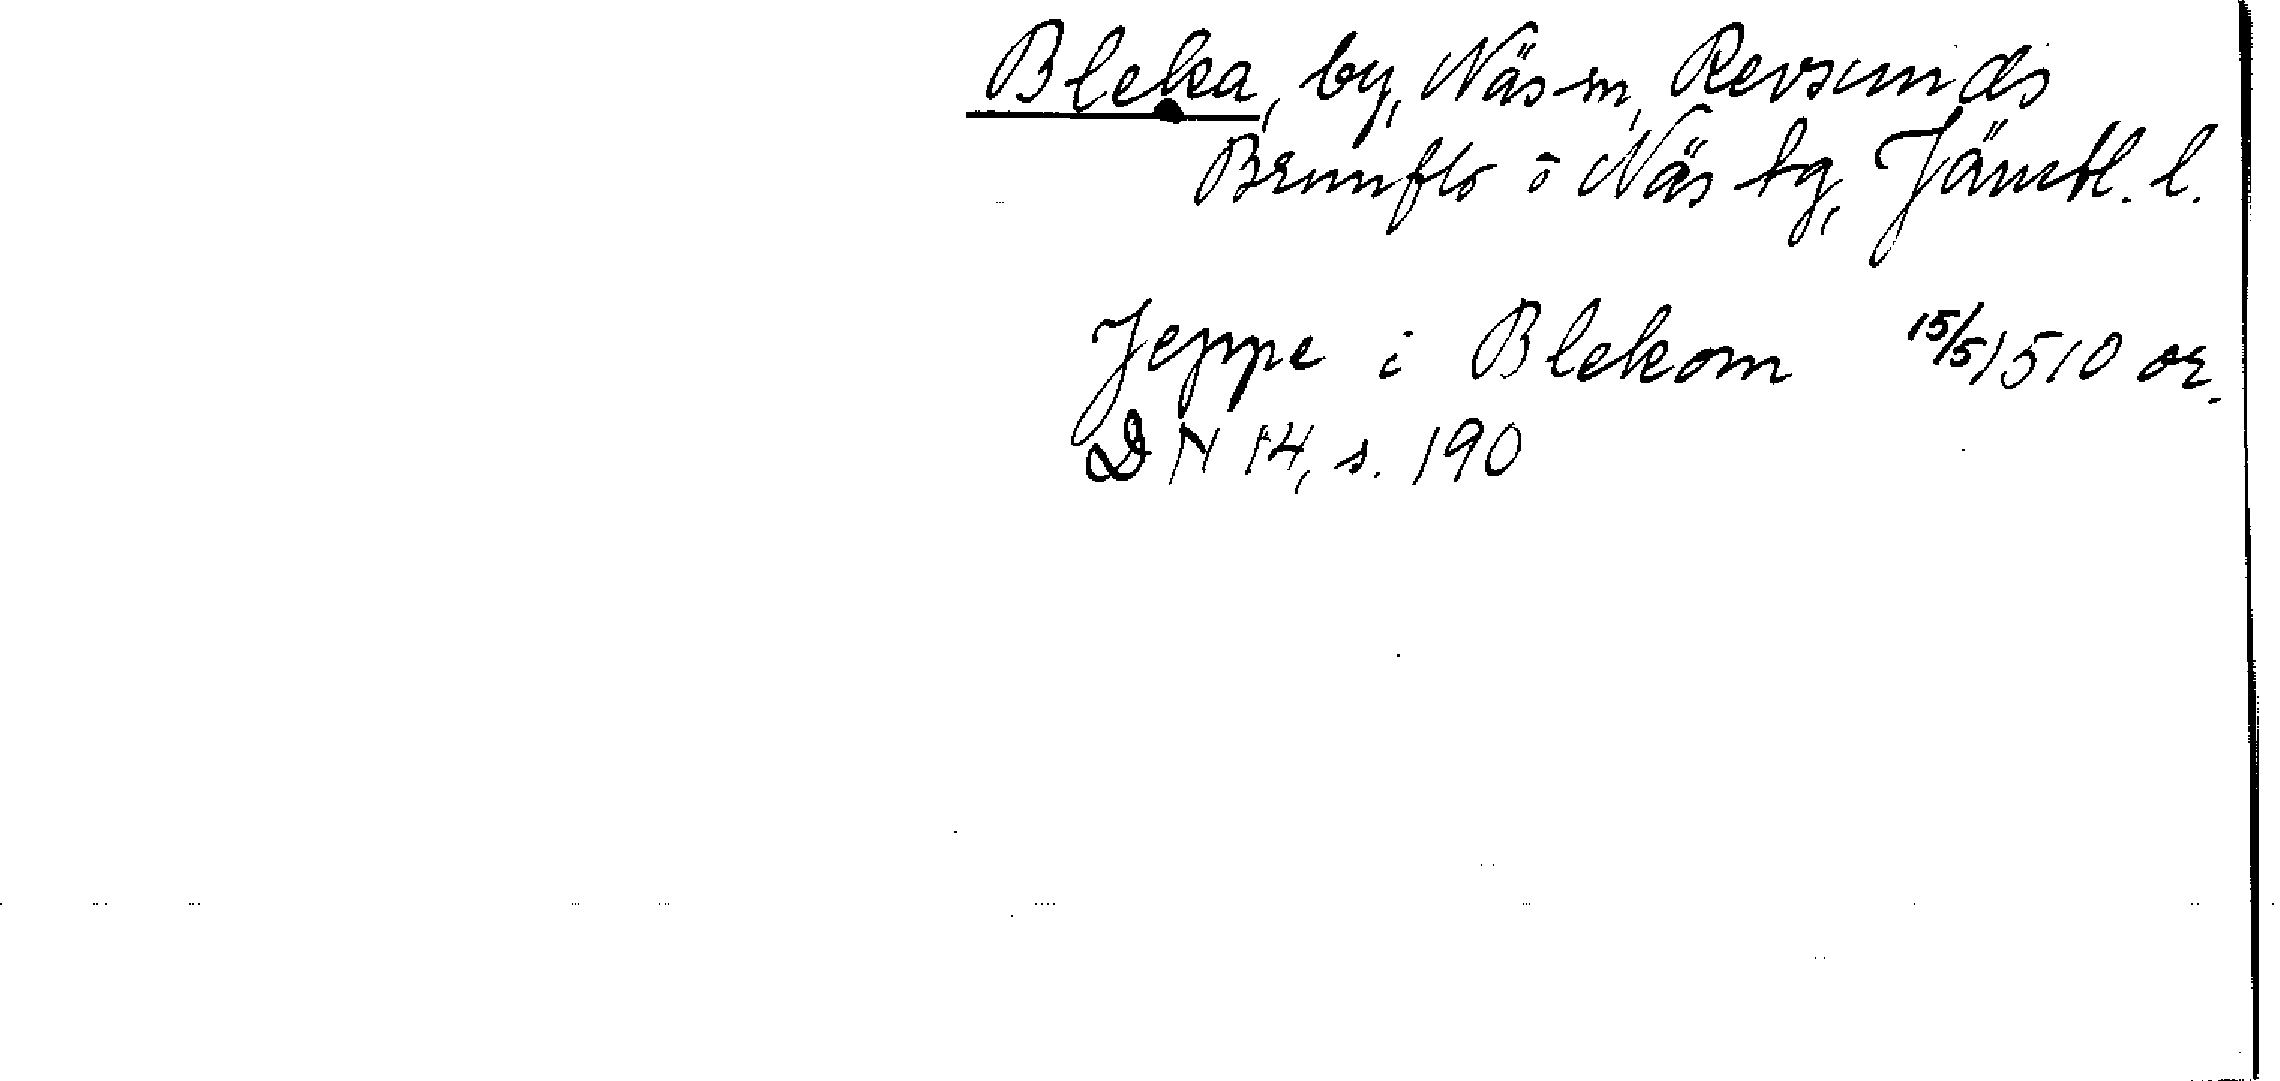 Bleka, by, Näs sn, Revsunds
Brunflo o Näs tg, Jämtl. l.
Jeppe i Blekom 15/5 1510 or.
DN 14, s. 190